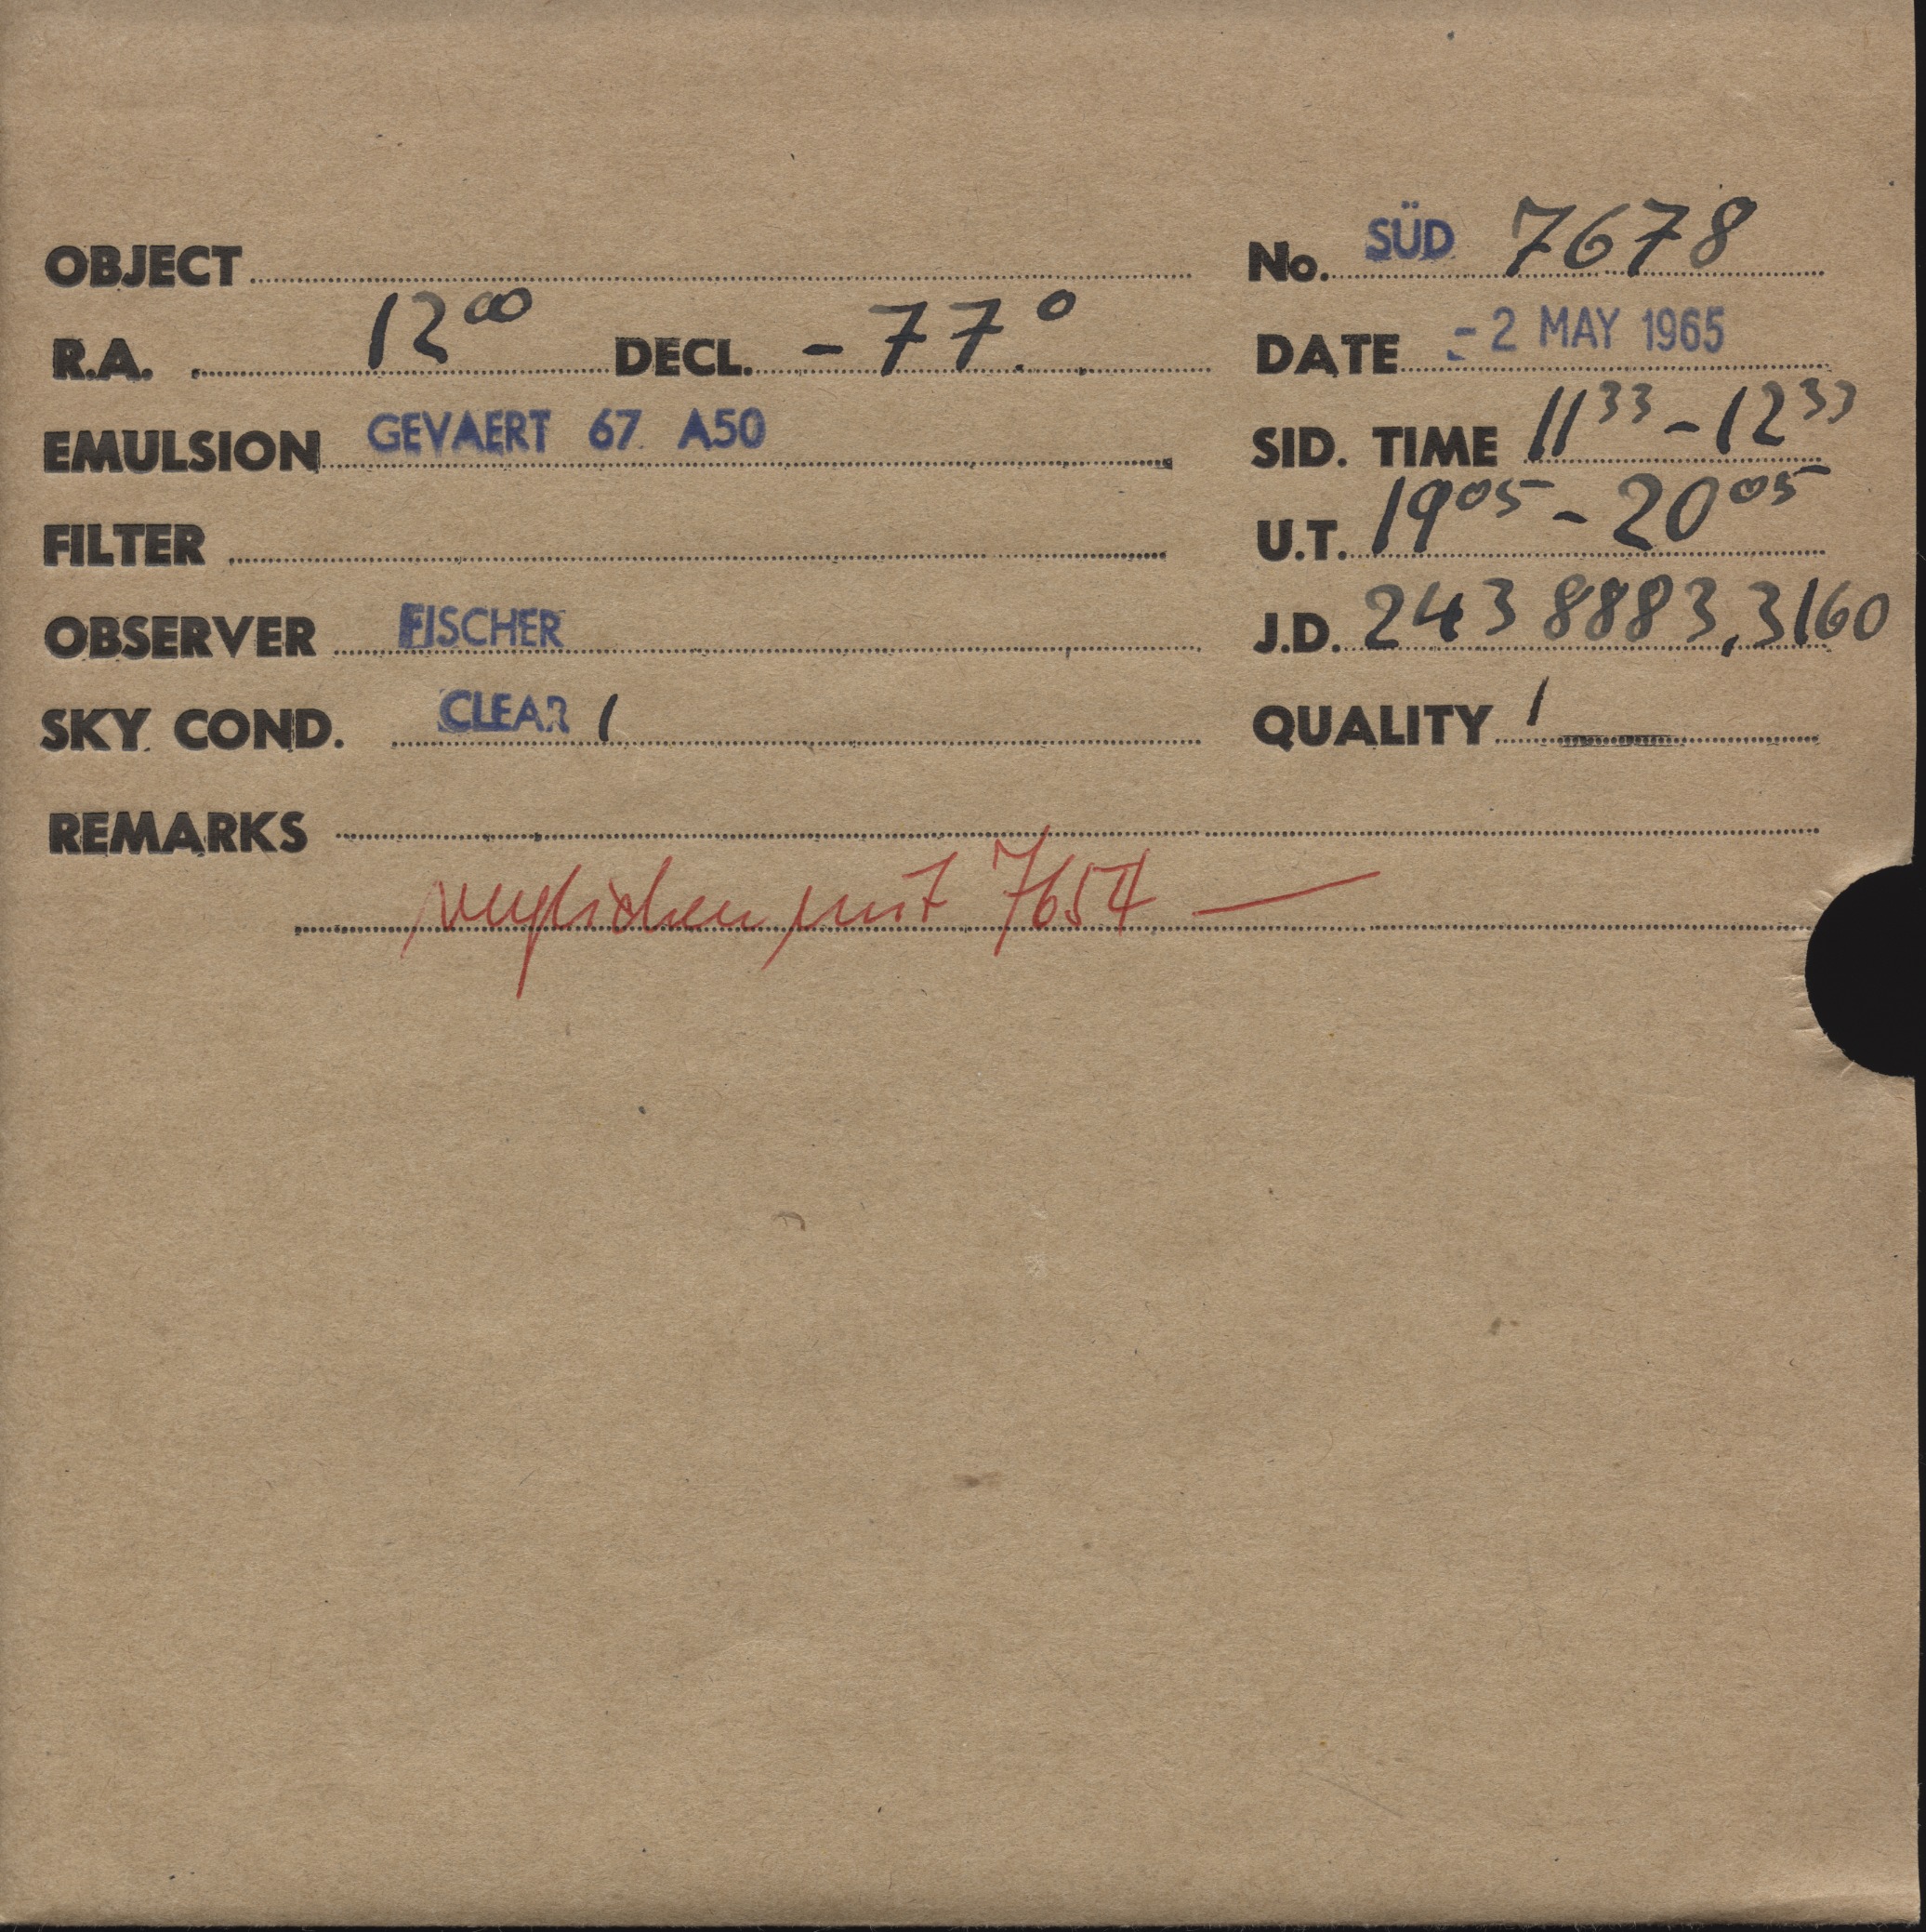 OBJECT
No. SÜD 7678
R.A. 12⁰⁰ DECL. -77°
DATE - 2 MAY 1965
EMULSION GEVAERT 67 A50
SID. TIME 11³³ - 12³³
FILTER
U.T. 19⁰⁵ - 20⁰⁵
OBSERVER FISCHER
J.D. 243 8883,3160
SKY COND. CLEAR 1
QUALITY 1
REMARKS
verglichen mit 7654 —